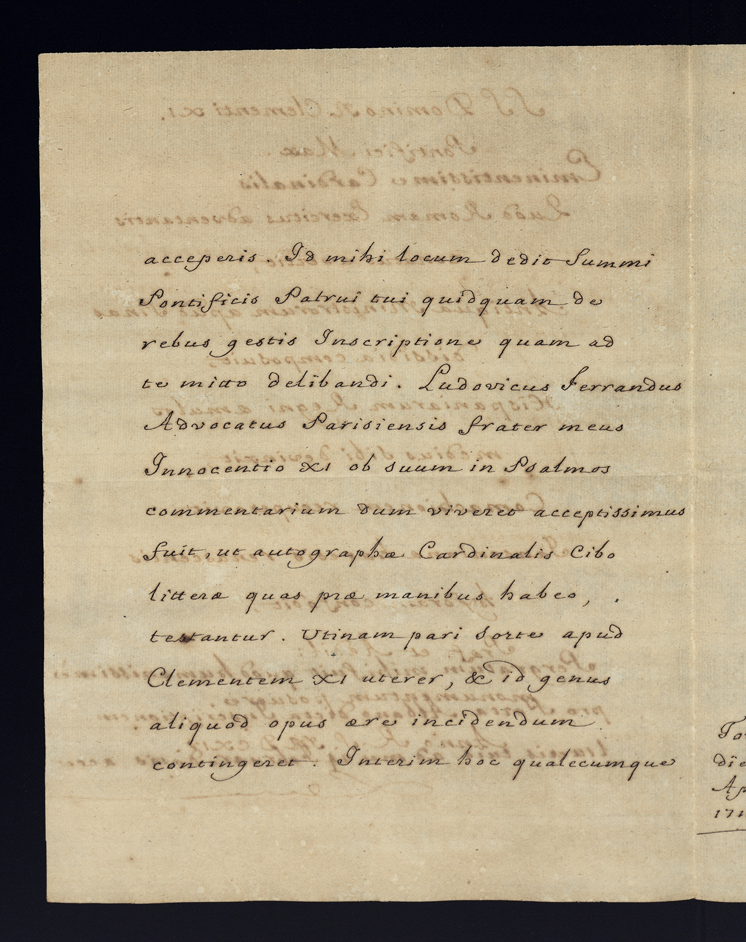 acceperis. Id mihi locum dedit Summi
Pontificis Patrui tui quidquam de
rebus gestis Inscriptione quam ad
te mitto delibandi. Ludovicus Ferrandus
Advocatus Parisiensis frater meus
Innocentio XI ob suum in Psalmos
commentarium dum viveret acceptissimus
fuit, ut autographæ Cardinalis Cibo
litteræ quas præ manibus habeo,
testantur. Utinam pari sorte apud
Clementem XI uterer, & id genus
aliquod opus ære incidendum
contingeret. Interim hoc qualecumque